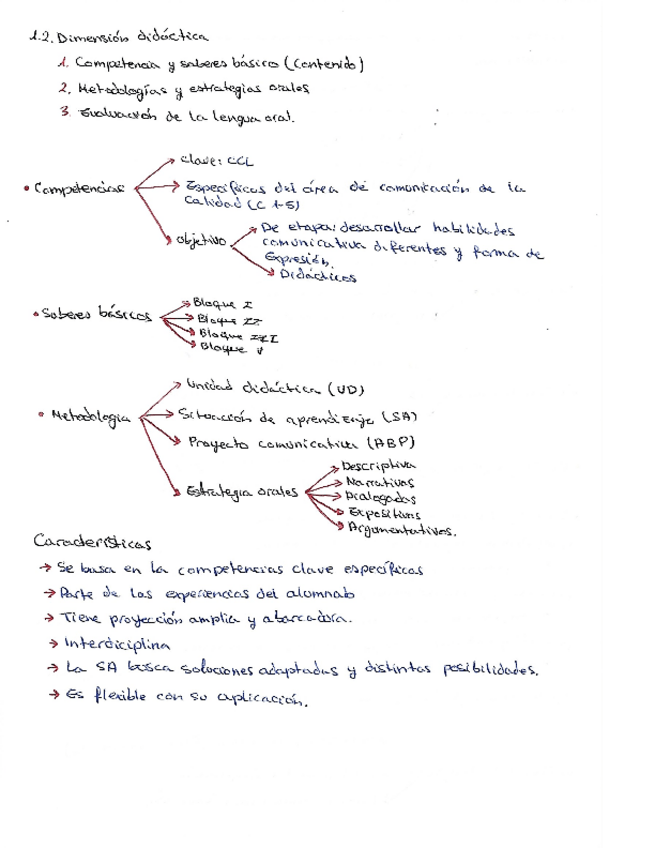 1.2. Dimensión didáctica
1. Competencia y saberes básico (contenido)
2. Metodologías y estrategias orales
3. Evaluación de la lengua oral.
• Competencias
Clave: CCL
Específicas del área de comunicación de la
Calidad (C +5)
objetivo
De etapa: desarrollar habilidades
comunicativa diferentes y forma de
Expresión.
Didácticos
• Saberes básicos
Bloque I
Bloque II
Bloque III
Bloque V
• Metodología
Unidad didáctica (UD)
Situación de aprendizaje (SA)
Proyecto comunicativa (ABP)
Estrategia orales
Descriptiva
Narrativas
Dialogadas
Expositivas
Argumentativos.
Características
→ Se basa en la competencias clave específicas
→ Parte de las experiencias del alumnado
→ Tiene proyección amplia y abarcadora.
→ Interdiciplina
→ La SA busca soluciones adaptadas y distintas posibilidades.
→ Es flexible con su aplicación.